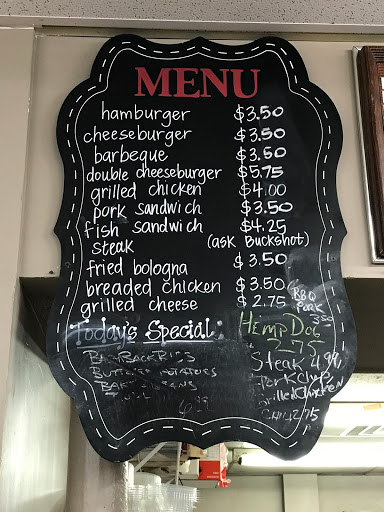 MENU
hamburger $3.50
cheeseburger $3.50
barbeque $3.50
double cheeseburger $5.75
grilled chicken $4.00
pork sandwich $3.50
fish sandwich $4.25
steak (ask Buckshot)
fried bologna $3.50
breaded chicken $3.50
grilled cheese $2.75
BBQ
Pork
350
Today's Special:
Hemp Dog
2.75
Steak 4.99
Grilled Chicken